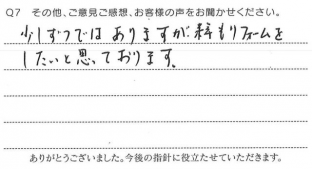 Q7 その他、ご意見ご感想、お客様の声をお聞かせください。
少しずつではありますが まだ リフォームを
したいと思っております。
ありがとうございました。今後の指針に役立たせていただきます。